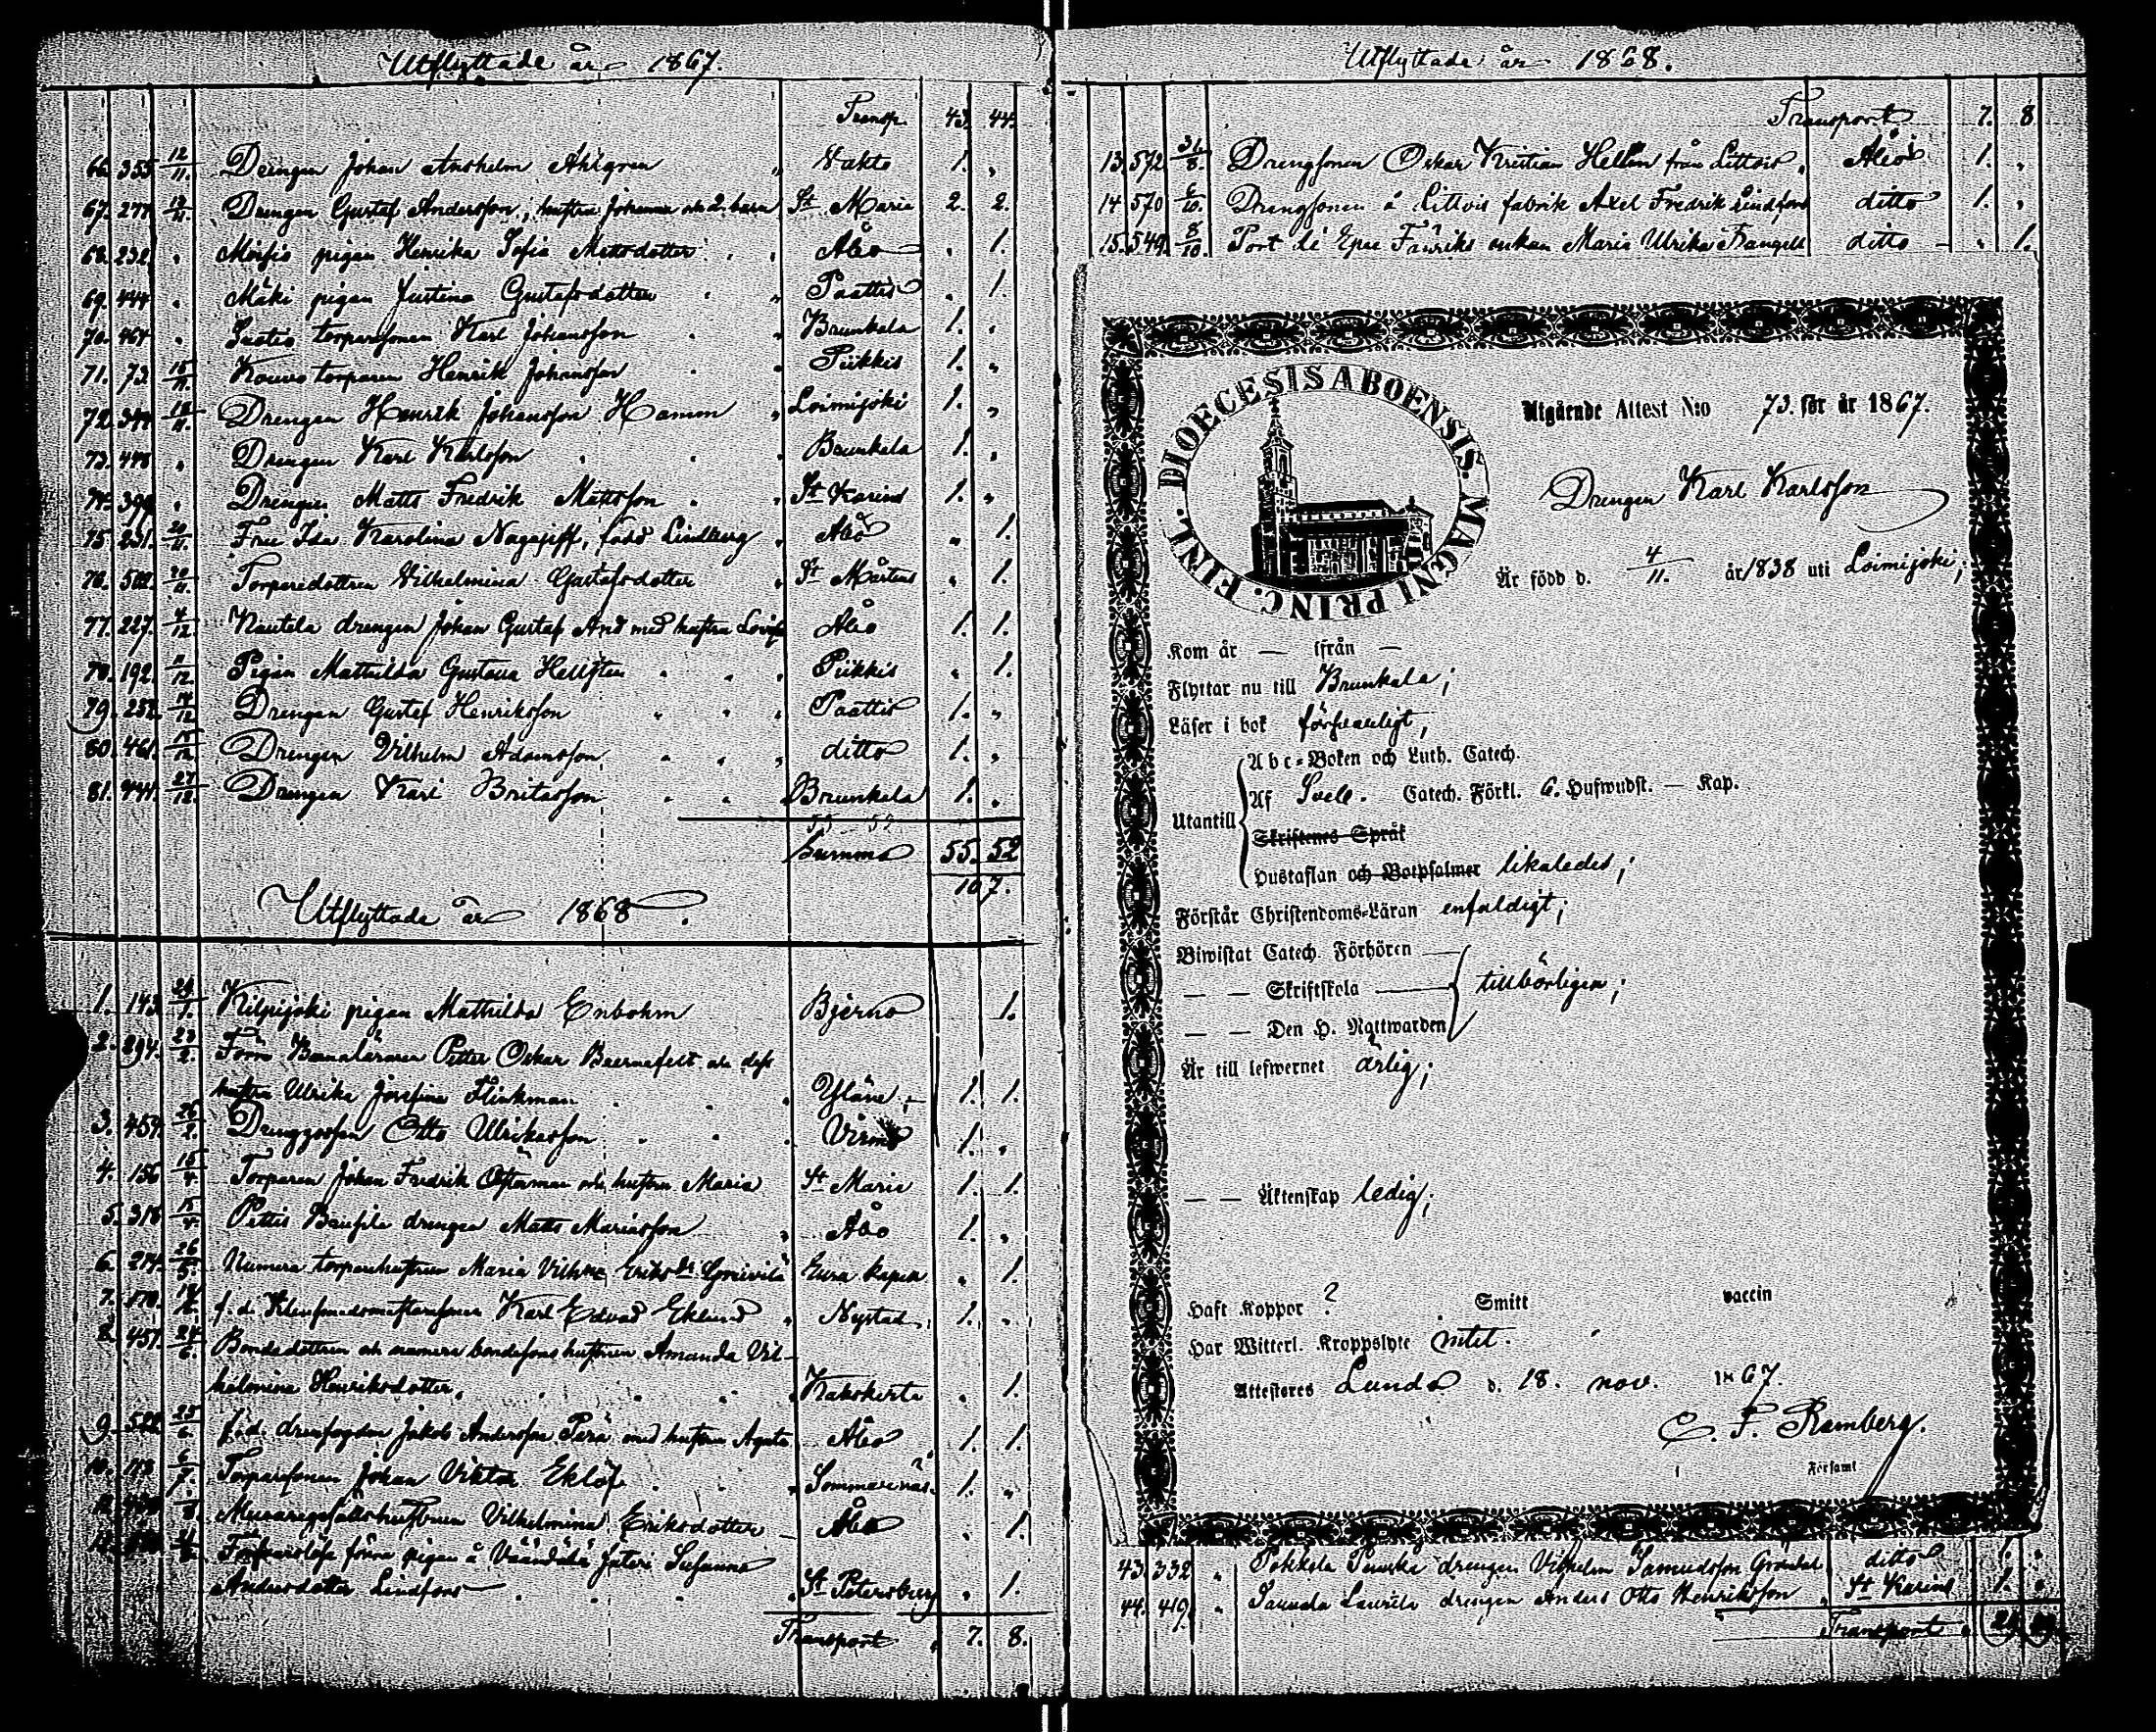 Utflyttade år 1867.
Transp. 43. 44.
66. 355 12/11. Drengen Johan Anshelm Ahlgren " Vakto 1. "
67. 277 13/11. Drengen Gustaf Andersson, hustru Johanna och 2. barn St. Marie 2. 2.
68. 232. " Moisio pigan Henrika Sofia Mattsdotter " Åbo " 1.
69. 444 " Mäki pigan Justina Gustafsdotter " Paattis " 1.
70. 467 " torparesonen Karl Johansson " Brunkala 1. "
71. 73 15/11. Kouvo torparen Henrik Johansson " Piikkis 1. "
72. 344 18/11. Drengen Henrik Johansson Hamm " Loimijoki 1. "
73. 448 " Drengen Karl Karlsson " Brunkala 1. "
74. 394 " Drengen Matts Fredrik Mattsson " St Karins 1. "
75. 231. 20/11. Fru Ida Karolina född Lindberg " Åbo " 1.
76. 502. 20/11. Torparedottren Vilhelmina Gustafsdotter " St Mårtens " 1.
77. 227. 4/12. Nautela drengen Johan Gustaf And med hustru Lovisa Åbo 1. 1.
78. 192. 11/12. Pigan Mathilda Gustava Hellsten " Piikkis " 1.
79. 252. 14/12. Drengen Gustaf Henriksson " Paattis 1. "
80. 461. 15/12. Drengen Vilhelm Adamsson " ditto 1. "
81. 441. 27/12. Drengen Karl Britasson " Brunkala 1. "
Summa 55. 52
107.
Utflyttade år 1868.
1. 143. 24/1. Kilpijoki pigan Mathilda Enbohm Bjerno 1.
2. 294. 23/2. Förra Petter Oskar och dess
hustru Ulrika Josefina Flinkman " Yläne 1. 1.
3. 459. 26/2. Otto Ulrikasson " Virmo 1. "
4. 156 15/4. Torparen Johan Fredrik Österman och hustru Maria St Marie 1. 1.
5. 318 15/4. Pettis drengen Matts Mariasson " Åbo 1. "
6. 214. 26/5. Numera torparehustrun Maria Eura kapell " 1.
7. 170. f.d. Karl Edvard Eklund " Nystad 1. "
8. 457. 24/6. Bondedottren och numera bondesons hustrun Amanda Vil-
helmina Henriksdotter. " Kakskerta " 1.
9. 522 25/6. f.d. Jakob Andersson Perä med hustrun Agata Åbo 1. 1.
10. 113 6/7. Torparesonen Johan Viktor Eklöf " Sommarnäs 1. "
Vilhelmina Eriksdotter Åbo " 1.
förra pigan å Säteri Susanna
Andersdotter Lindfors " St Petersburg " 1.
Transport " 7. 8.
Utflyttade år 1868.
Transport 7. 8
13. 572 31/8. Drengsonen Oskar Kristian Hellén från Littois " Åbo 1. "
14 570 6/10. Drengsonen å Littois fabrik Axel Fredrik Lindfors ditto 1. "
15. 549. 8/10. enkan Maria Ulrika Frangell ditto " 1.
DIOECESIS ABOENSIS. MAGNI PRINC. FINL.
Utgående Attest N:o 73. för år 1867.
Drengen Karl Karlsson
Är född d. 4/11. år 1838 uti Loimijoki;
Kom år — ifrån —
Flyttar nu till Brunkala;
Läser i bok försvarligt;
Utantill
Abc-Boken och Luth. Catech.
Af Sveb. Catech. Förkl. 6. Hufwudst. — Kap.
Skriftenes Språk
Hustaflan och Botpsalmer likaledes;
Förstår Christendoms-Läran enfaldigt;
Biwistat Catech. Förhören —
— — Skriftskola — tillbörligen;
— — Den H. Nattwarden
Är till lefwernet ärlig;
— — Äktenskap ledig;
Haft Koppor ? Smitt vaccin
Har Witterl. Kroppslyte intet.
Attesteres Lundo d. 18. nov. 1867.
C. F. Ramberg.
43. 332 " drengen Vilhelm Samuelsson ditto 1. "
44. 419. " Laurila drengen Anders Otto Henriksson " St Karins 1. "
Transport